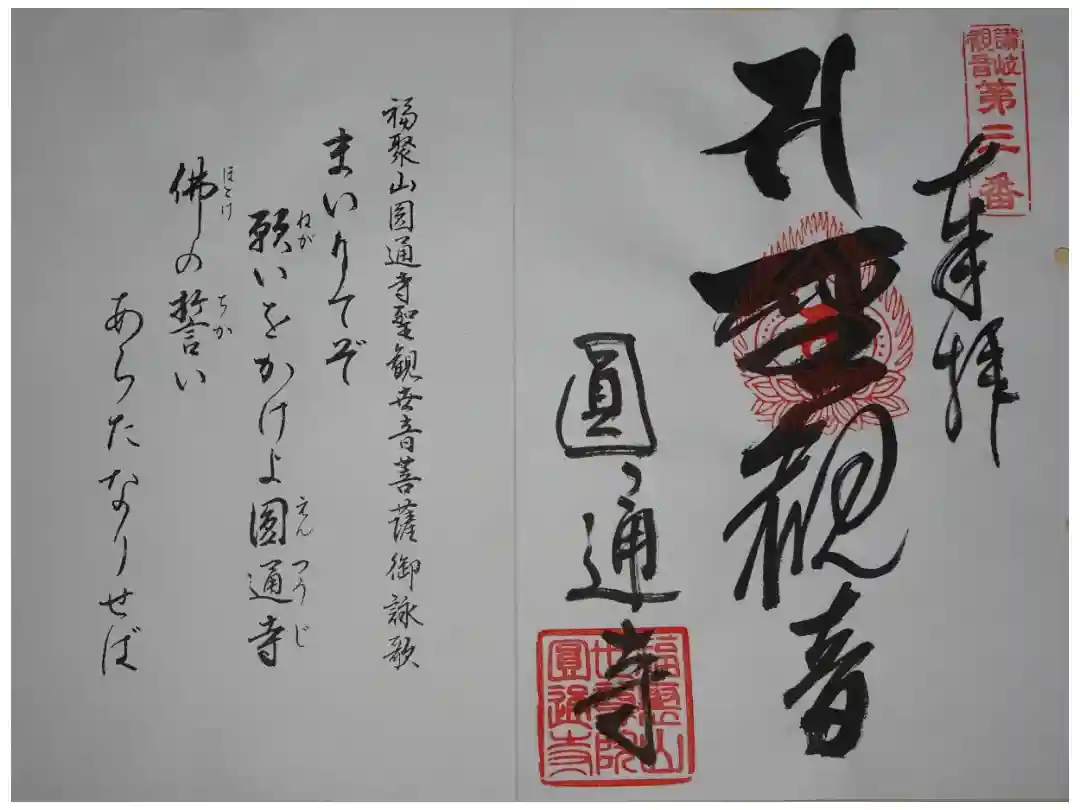 讃岐
観音
第三番
奉拝
聖観音
圓通寺
福聚山
世尊院
圓通寺
福聚山圓通寺聖観世音菩薩御詠歌
まいりてぞ
願いをかけよ圓通寺
ねが
えんつうじ
佛の誓い
ほとけ
ちか
あらたなりせば